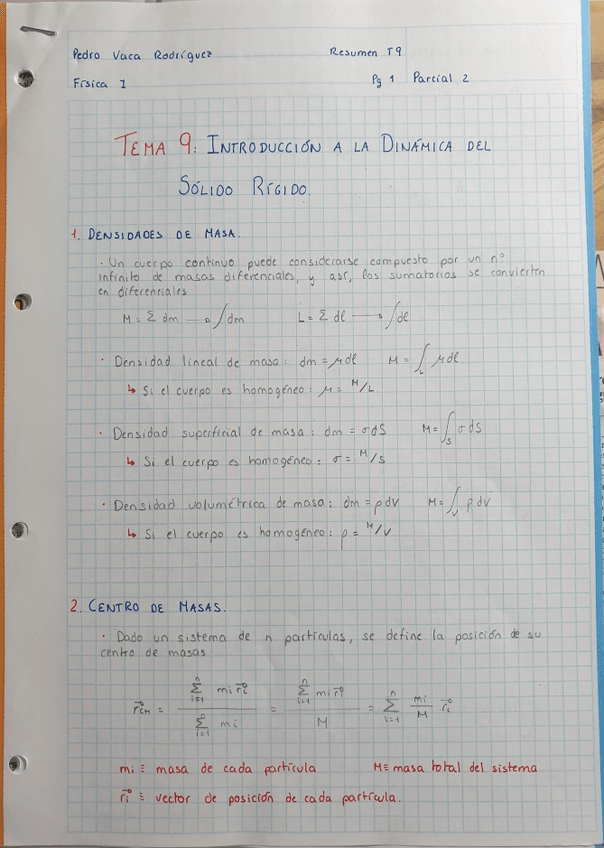 Pedro Vaca Rodríguez Resumen T9
Física I Pg 1 Parcial 2
TEMA 9: INTRODUCCIÓN A LA DINÁMICA DEL
SÓLIDO RÍGIDO.
1. DENSIDADES DE MASA.
· Un cuerpo continuo puede considerarse compuesto por un nº
infinito de masas diferenciales, y así, los sumatorios se convierten
en diferenciales
M = Σ dm → ∫ dm L = Σ dl → ∫ dl
· Densidad lineal de masa: dm = μdl M = ∫_L μdl
↳ Si el cuerpo es homogéneo: μ = M/L
· Densidad superficial de masa: dm = σdS M = ∫_S σdS
↳ Si el cuerpo es homogéneo: σ = M/S
· Densidad volumétrica de masa: dm = ρdV M = ∫_V ρdV
↳ Si el cuerpo es homogéneo: ρ = M/V
2. CENTRO DE MASAS.
· Dado un sistema de n partículas, se define la posición de su
centro de masas
r⃗_CM = (Σ_{i=1}^{n} mi r⃗i) / (Σ_{i=1}^{n} mi) = (Σ_{i=1}^{n} mi r⃗i) / M = Σ_{i=1}^{n} (mi / M) r⃗i
mi ≡ masa de cada partícula M ≡ masa total del sistema
r⃗i ≡ vector de posición de cada partícula.